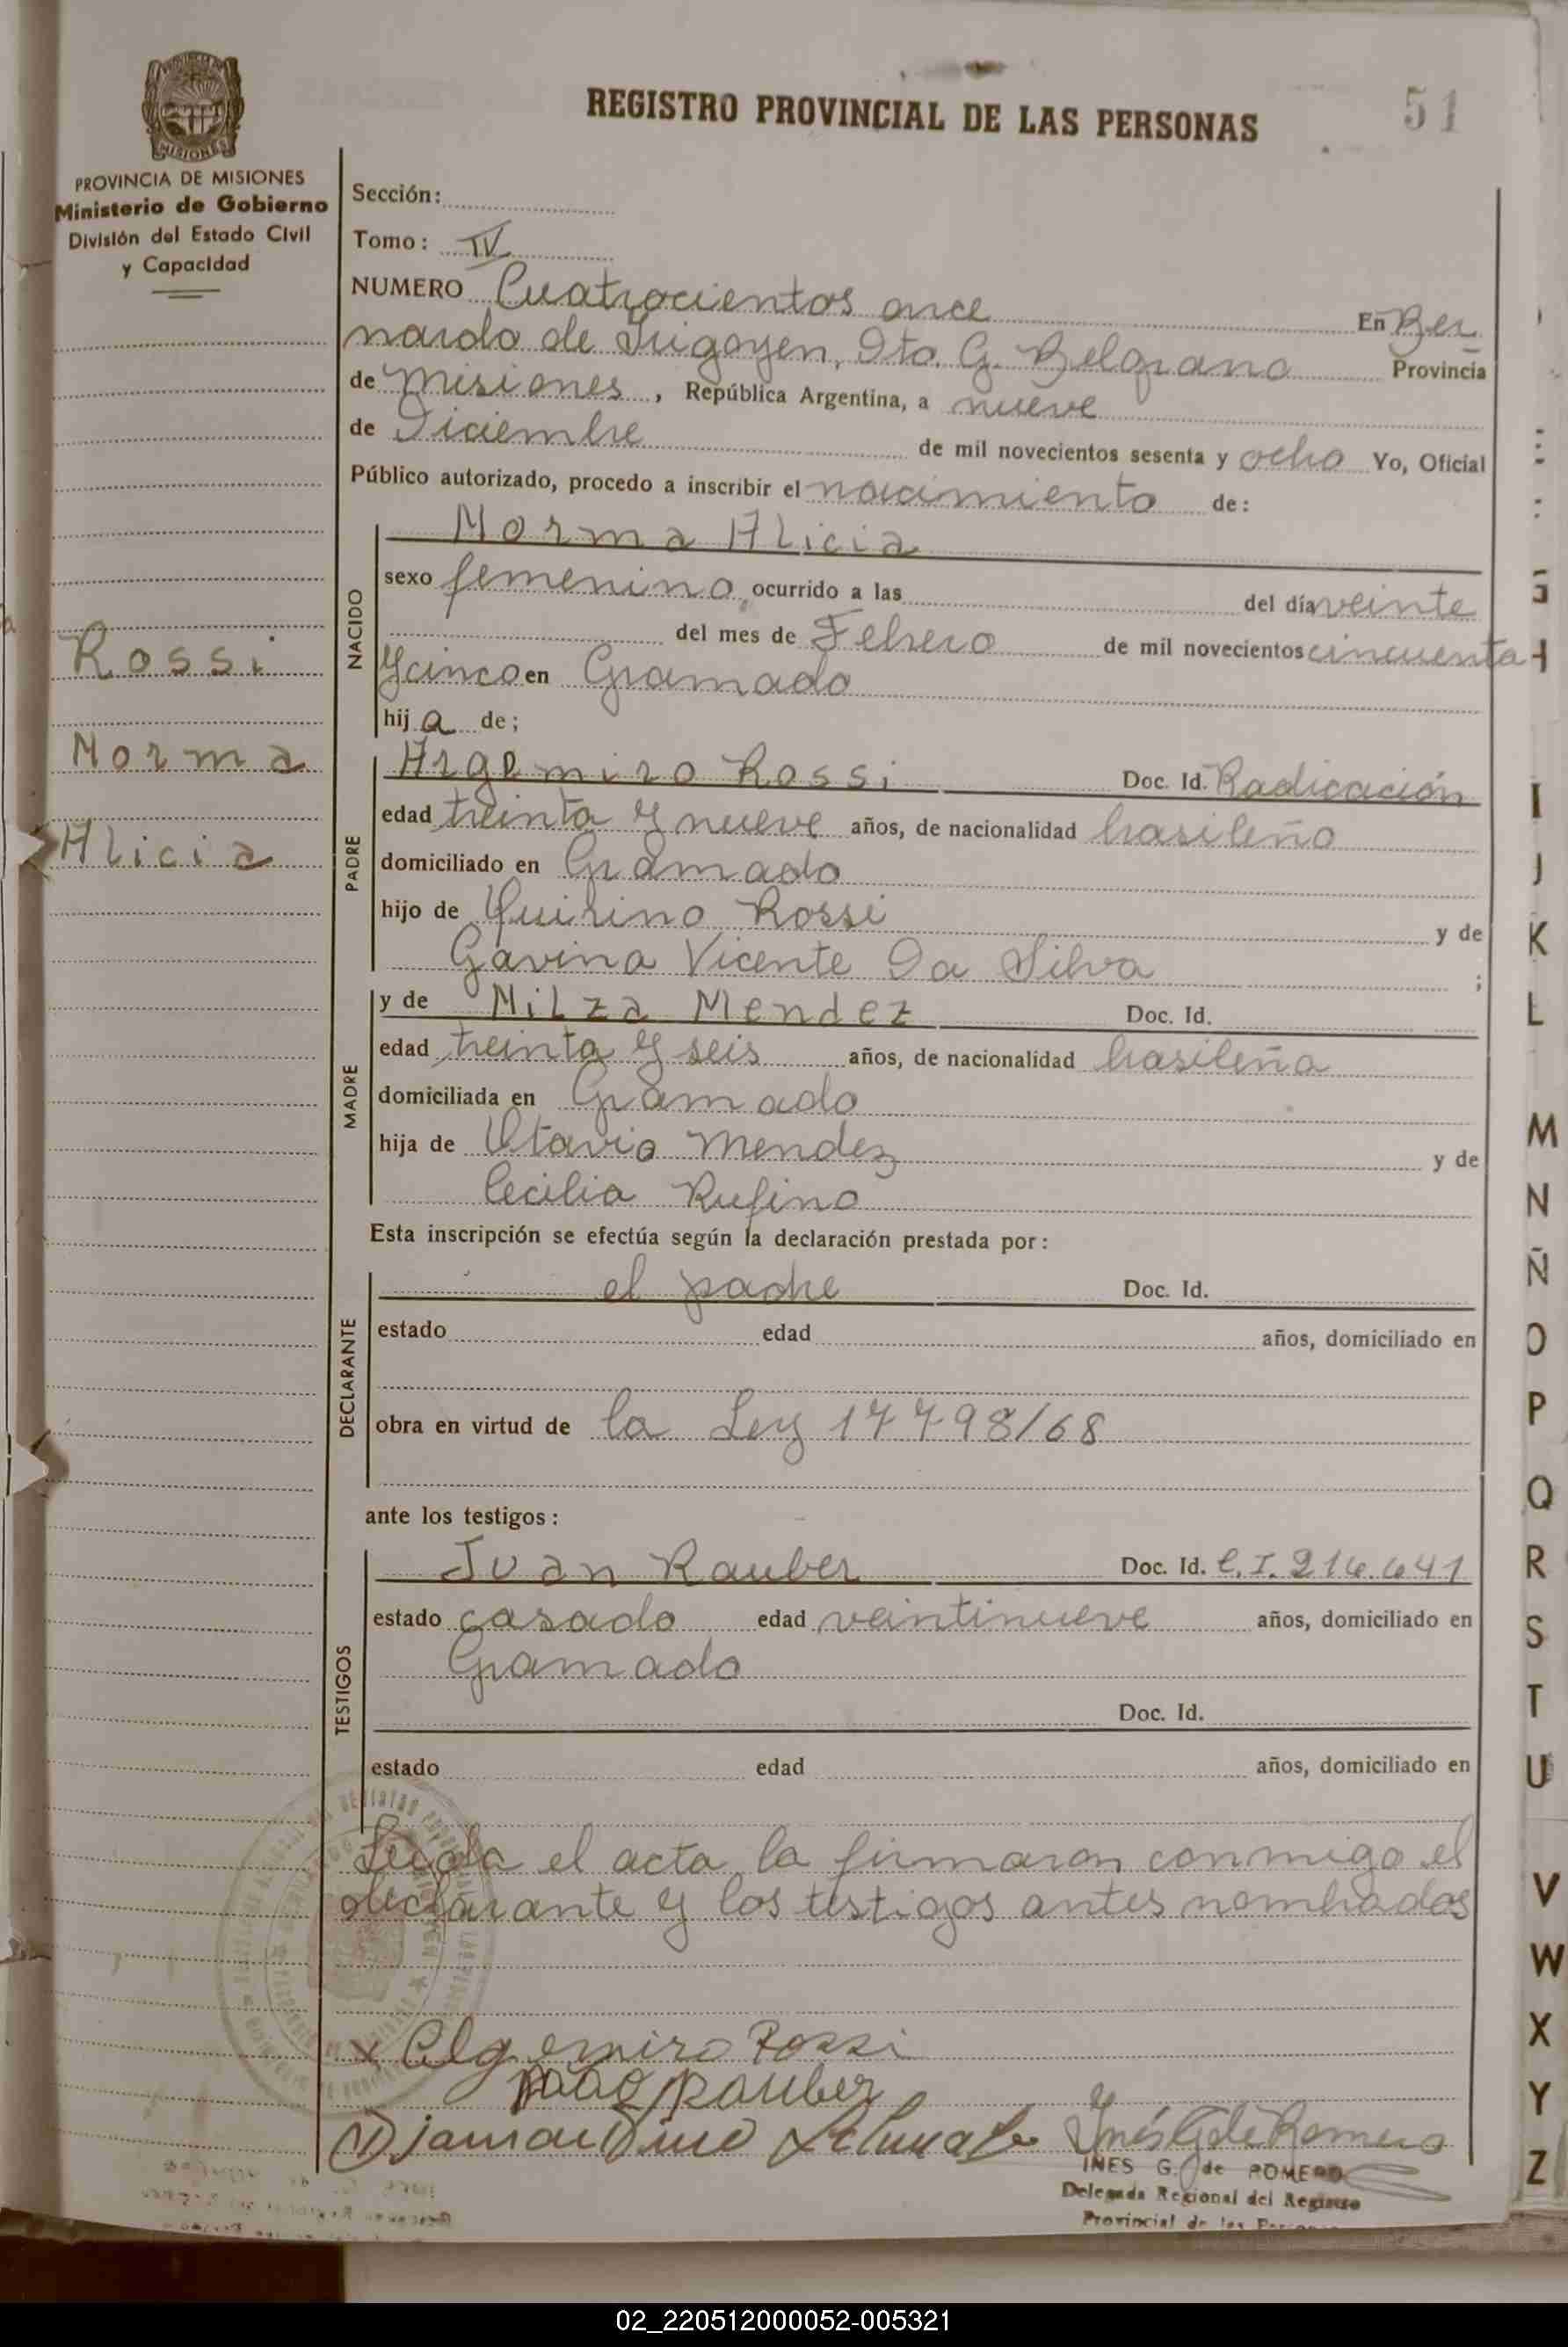 MISIONES
PROVINCIA DE MISIONES
Ministerio de Gobierno
División del Estado Civil
y Capacidad
REGISTRO PROVINCIAL DE LAS PERSONAS
51
Sección:
Tomo: IV
NUMERO Cuatrocientos once En Ber
nardo de Irigoyen, Dto. G. Belgrano Provincia
de Misiones, República Argentina, a nueve
de Diciembre de mil novecientos sesenta y ocho Yo, Oficial
Público autorizado, procedo a inscribir el nacimiento de:
NACIDO
Norma Alicia
sexo femenino, ocurrido a las del día veinte
del mes de Febrero de mil novecientos cincuenta
y cinco en Gramado
hij a de;
Rossi
Norma
Alicia
PADRE
Argemiro Rossi Doc. Id. Radicación
edad treinta y nueve años, de nacionalidad brasileño
domiciliado en Gramado
hijo de Quirino Rossi y de
Gavina Vicente Da Silva ;
MADRE
y de Nilza Mendez Doc. Id.
edad treinta y seis años, de nacionalidad brasileña
domiciliada en Gramado
hija de Otavio Mendez y de
Cecilia Rufino
Esta inscripción se efectúa según la declaración prestada por:
DECLARANTE
el padre Doc. Id.
estado edad años, domiciliado en
obra en virtud de la Ley 17798/68
ante los testigos:
TESTIGOS
Juan Rauber Doc. Id. C.I. 216.641
estado casado edad veintinueve años, domiciliado en
Gramado
Doc. Id.
estado edad años, domiciliado en
Leida el acta, la firmaron conmigo el
declarante y los testigos antes nombrados
x Algemiro Rossi
João Rauber
Inés G de Romero
INES G. de ROMERO
Delegada Regional del Registro
Provincial de las
G
H
I
J
K
L
M
N
Ñ
O
P
Q
R
S
T
U
V
W
X
Y
Z
02_220512000052-005321